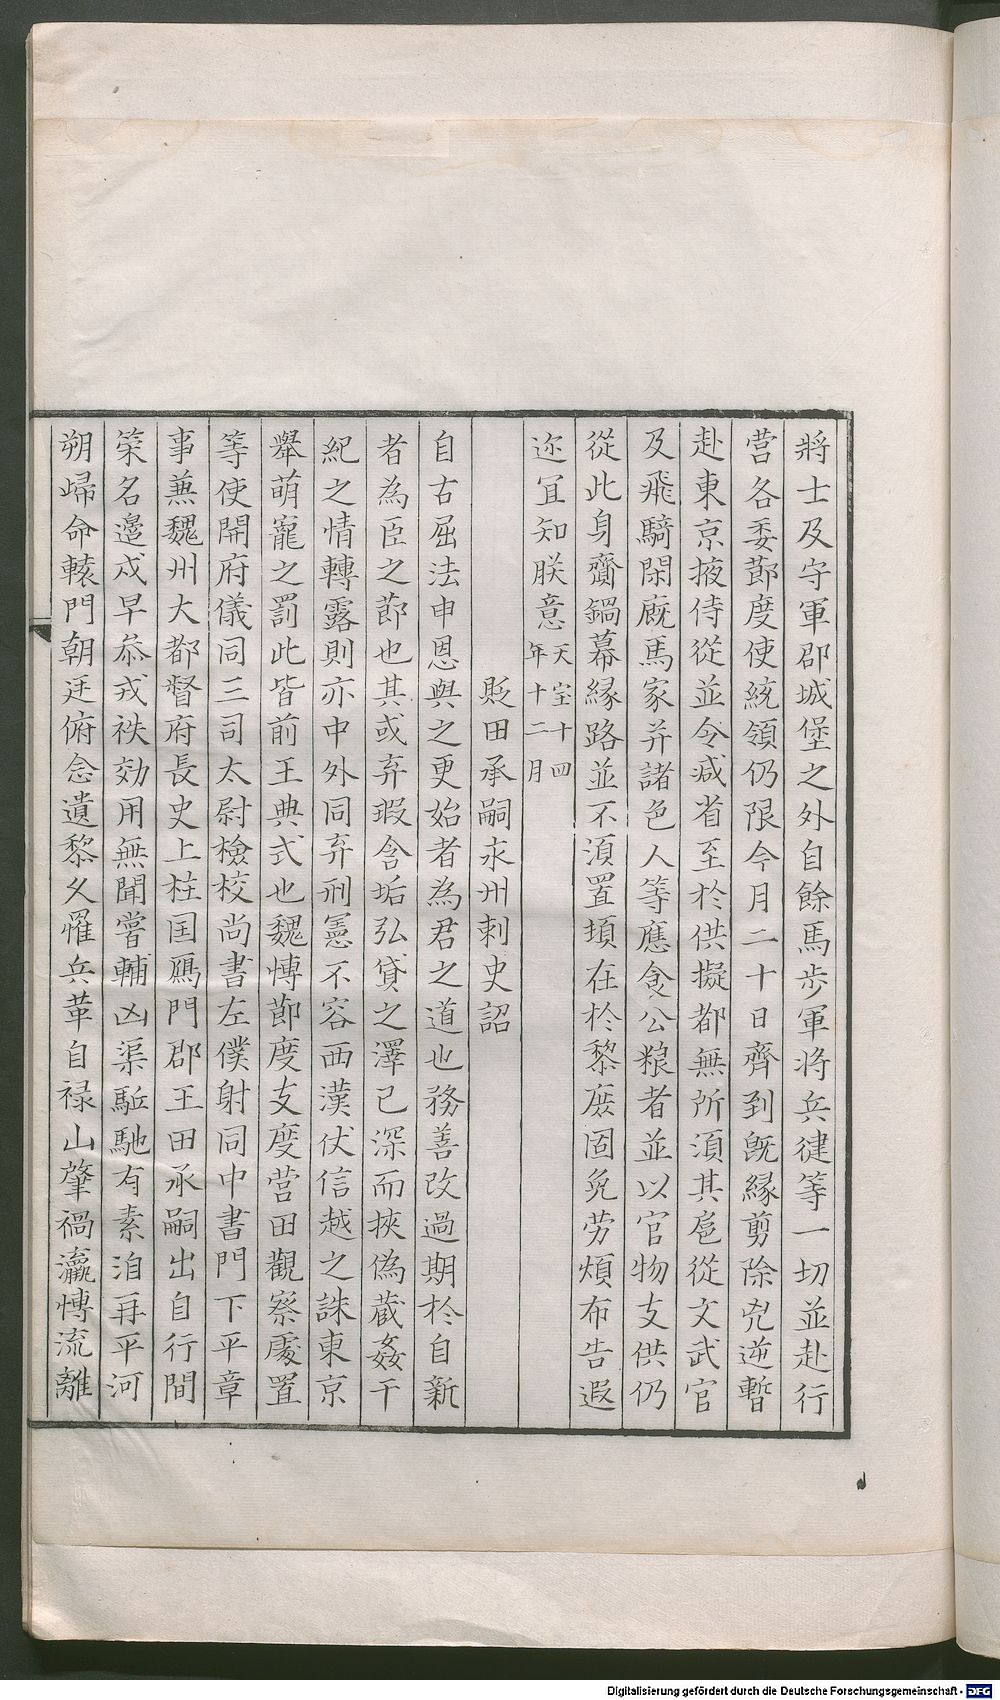 將士及守軍郡城堡之外自餘馬步軍將兵健等一切並赴行
營各委節度使統領仍限今月二十日齊到既緣剪除兇逆暫
赴東京掖侍從並令减省至於供擬都無所須其扈從文武官
及飛騎閑廐馬家并諸色人等應食公粮者並以官物支供仍
從此身賫鍋幕緣路並不須置頓在於黎庶固免劳煩布告遐
迩宜知朕意天宝十四年十二月
貶田承嗣永州刺史詔
自古屈法申恩與之更始者為君之道也務善改過期於自新
者為臣之節也其或弃瑕含垢弘貸之澤已深而挾偽蔵姦干
紀之情轉露則亦中外同弃刑憲不容西漢伏信越之誅東京
舉萌寵之罰此皆前王典式也魏愽節度支度營田觀察處置
等使開府儀同三司太尉檢校尚書左僕射同中書門下平章
事兼魏州大都督府長史上柱国鴈門郡王田承嗣出自行間
策名邉戍早叅戎秩効用無聞嘗輔凶渠駈馳有素洎再平河
朔歸命轅門朝廷俯念遺黎久罹兵革自禄山肇禍瀛愽流離